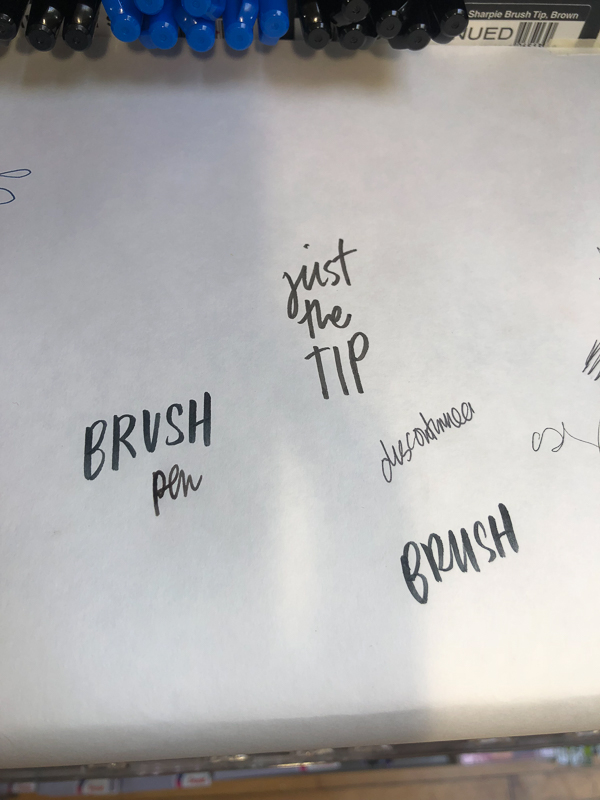 Sharpie Brush Tip, Brown
NUED
just
the
TIP
BRUSH
pen
discontinued
BRUSH